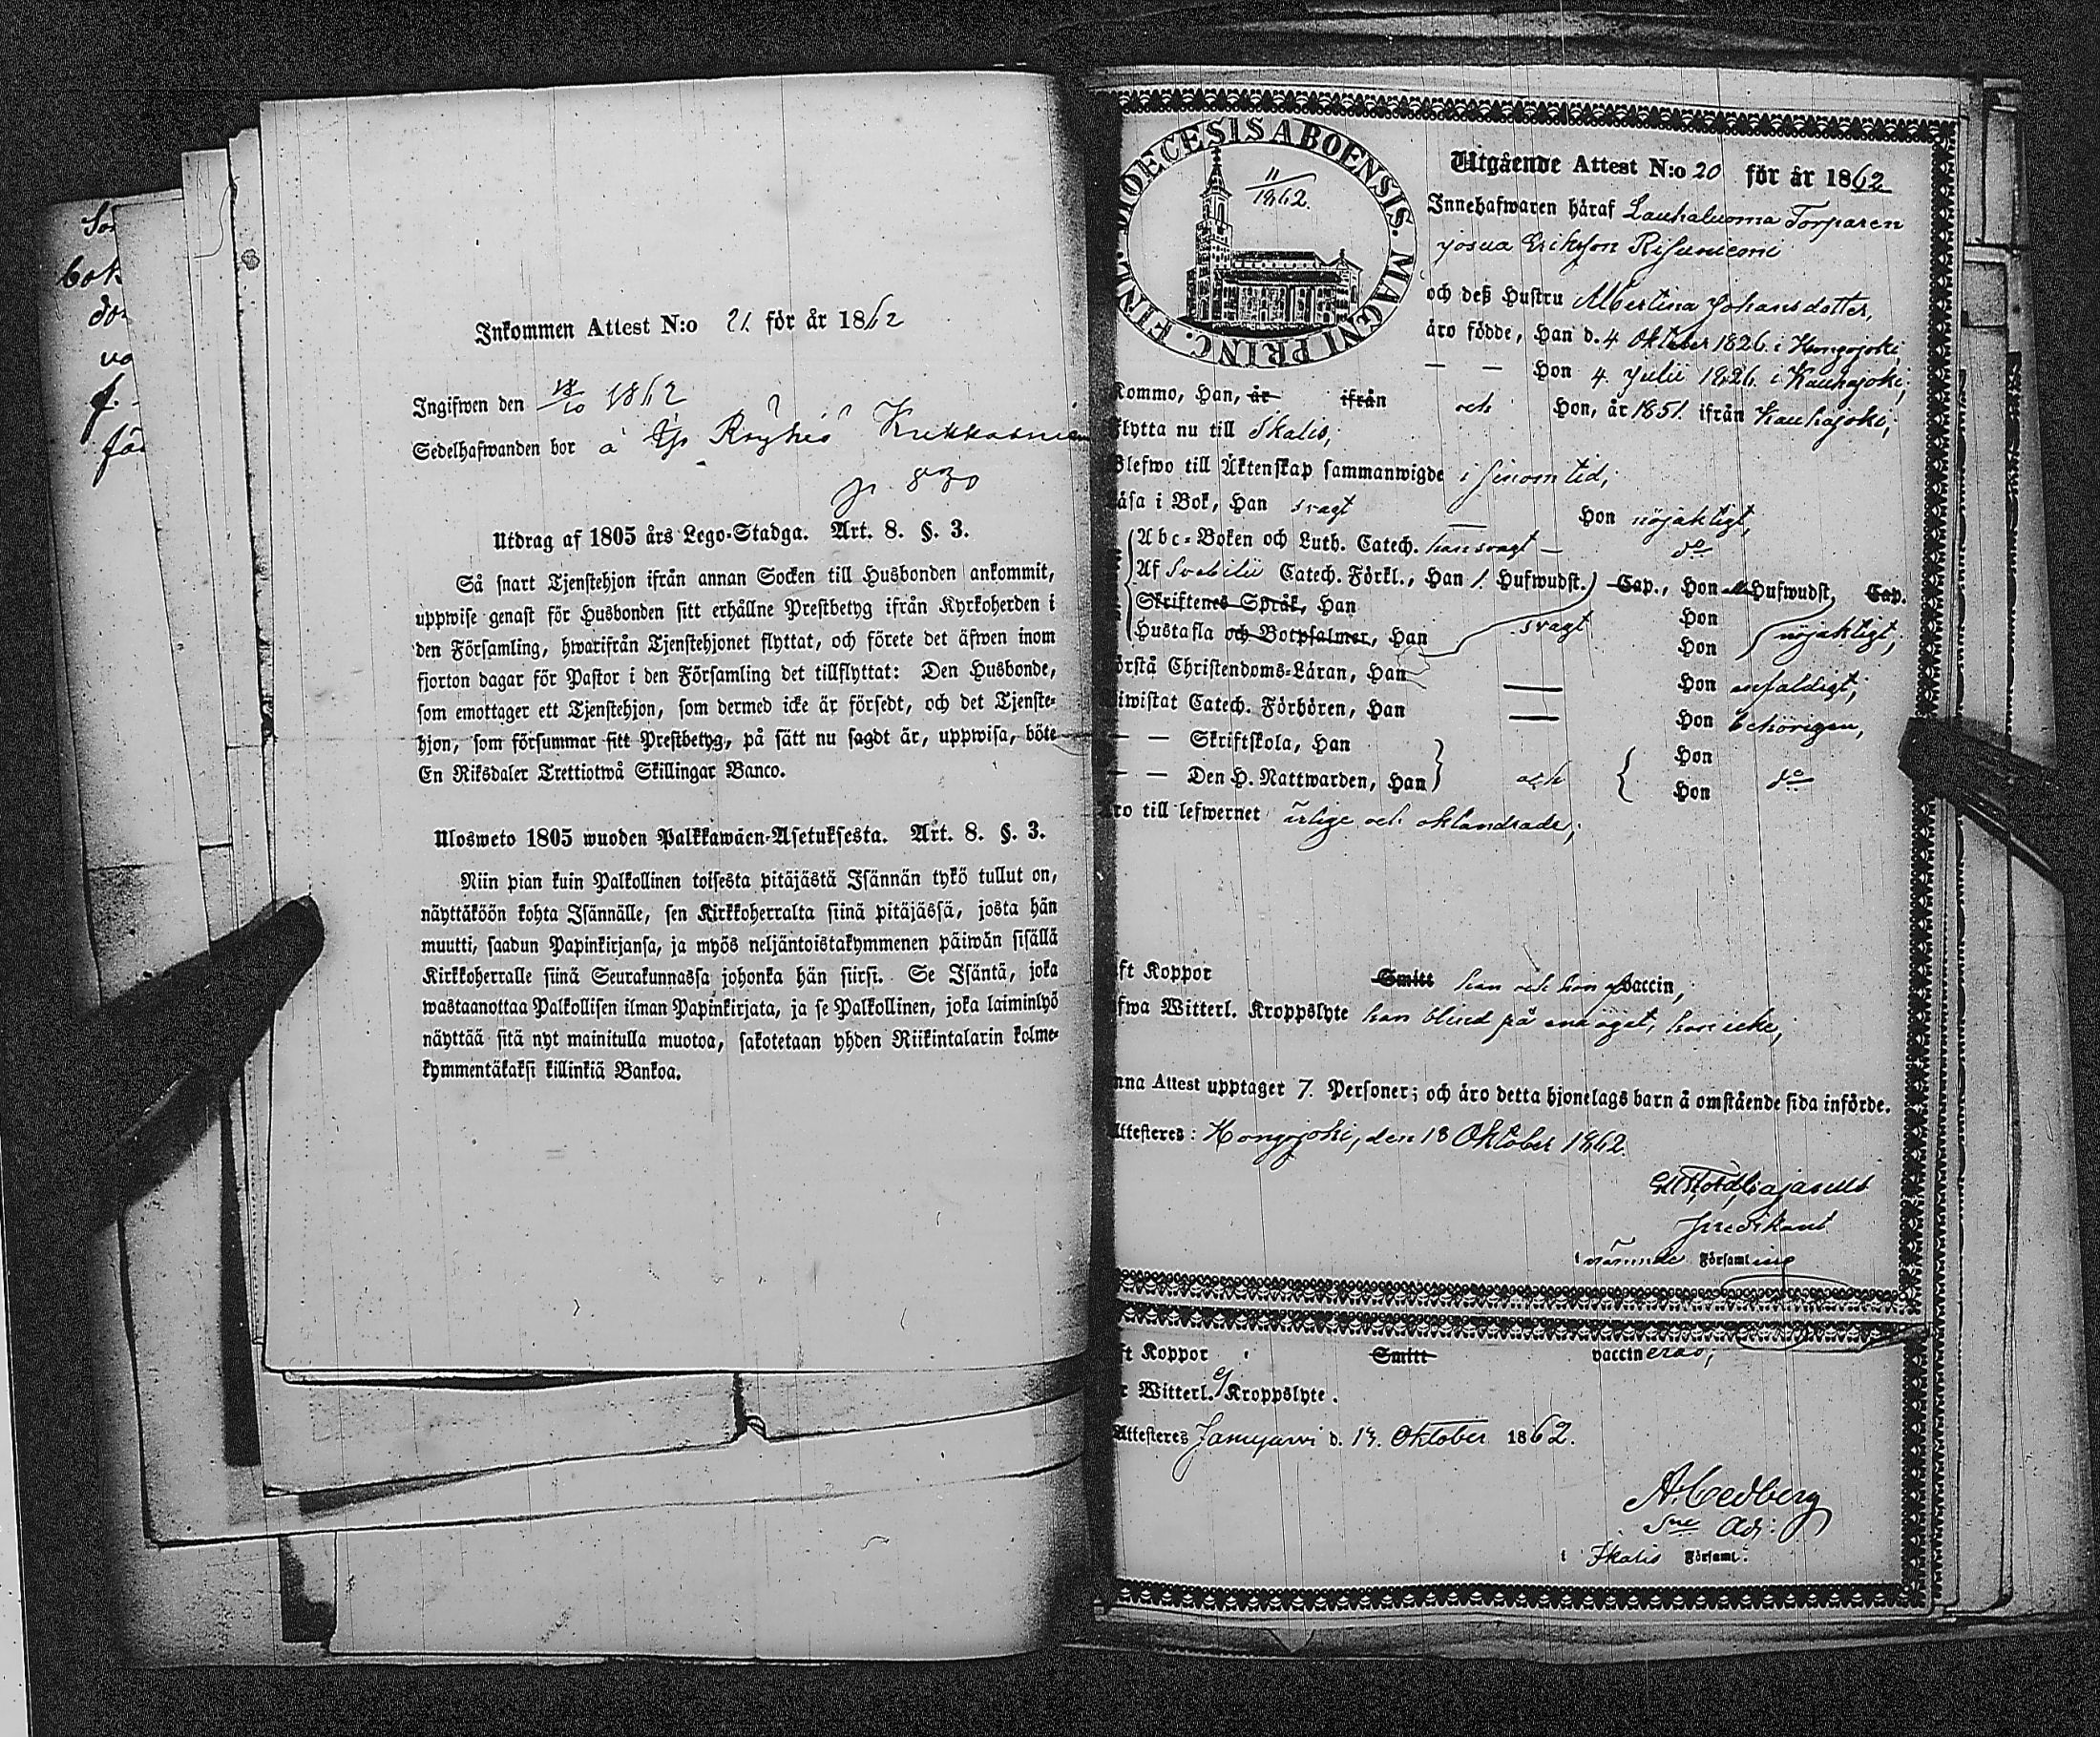 Inkommen Attest N:o 21. för år 1862
Ingifwen den 18/10 1862
Sedelhafwanden bor à
p. 830
Utdrag af 1805 års Lego-Stadga. Art. 8. §. 3.
Så snart Tjenstehjon ifrån annan Socken till Husbonden ankommit,
uppwise genast för Husbonden sitt erhållne Prestbetyg ifrån Kyrkoherden i
den Församling, hwarifrån Tjenstehjonet flyttat, och förete det äfwen inom
fjorton dagar för Pastor i den Församling det tillflyttat: Den Husbonde,
som emottager ett Tjenstehjon, som dermed icke är försedt, och det Tjenste-
hjon, som försummar sitt Prestbetyg, på sätt nu sagdt är, uppwisa, böte
En Riksdaler Trettiotwå Skillingar Banco.
Ulosweto 1805 wuoden Palkkawäen-Asetuksesta. Art. 8. §. 3.
Niin pian kuin Palkollinen toisesta pitäjästä Isännän tykö tullut on,
näyttäköön kohta Isännälle, sen Kirkkoherralta siinä pitäjässä, josta hän
muutti, saadun Papinkirjansa, ja myös neljäntoistakymmenen päiwän sisällä
Kirkkoherralle siinä Seurakunnassa johonka hän siirsi. Se Isäntä, joka
wastaanottaa Palkollisen ilman Papinkirjata, ja se Palkollinen, joka laiminlyö
näyttää sitä nyt mainitulla muotoa, sakotetaan yhden Riikintalarin kolme-
kymmentäkaksi killinkiä Bankoa.
DIOECESIS ABOENSIS. MAGNI PRINC. FINL.
11/1862.
Utgående Attest N:o 20 för år 1862
Innehafwaren häraf Lauhaluoma Torparen
Josua Eriksson Risuniemi
och deß Hustru Albertina Johansdotter,
äro födde, Han d. 4 Oktober 1826. i Hongojoki,
— — Hon 4. Julii 1826. i Kauhajoki;
Kommo, Han, är ifrån och Hon, år 1851. ifrån Kauhajoki;
flytta nu till Ikalis;
Blefwo till Äktenskap sammanwigde i sinom tid;
läsa i Bok, Han svagt Hon nöjaktigt,
Abc-Boken och Luth. Catech. han svagt — do
Af Svebilii Catech. Förkl., Han 1. Hufwudst. Cap., Hon Hufwudst, Cap.
Skriftenes Språk, Han Hon
Hustafla och Botpsalmer, Han svagt Hon nöjaktigt;
förstå Christendoms-Läran, Han — Hon enfaldigt;
biwistat Catech. Förhören, Han — Hon behörigen,
— — Skriftskola, Han Hon
— — Den H. Nattwarden, Han och Hon do
äro till lefwernet ärlige och oklandrade;
haft Koppor Smitt han och hon vaccin,
hafwa Witterl. Kroppslyte han blind på ena ögat, hon icke;
Denna Attest upptager 7. Personer; och äro detta hjonelags barn å omstående sida införde.
Attesteres: Hongojoki, den 18 Oktober 1862.
predikant
i nämnde Församling
haft Koppor Smitt vaccinerad;
Witterl. ej Kroppslyte.
Attesteres Jämijärvi d. 13. Oktober 1862.
A. Cedberg
Sne Adj:
i Ikalis Församl: